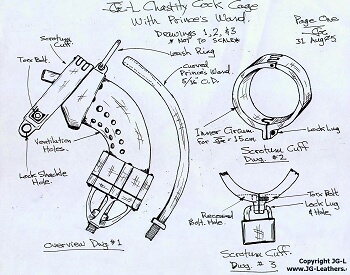 JG-L Chastity Cock Cage
With Prince's Wand.
Drawings 1, 2, & 3
* NOT TO SCALE *
Page One
31 Aug
Scrotum
Cuff.
Leash Ring
Torx Bolt.
Curved
Prince's Wand.
5/16" O.D.
Ventilation
Holes.
Lock Shackle
Hole.
Overview Dwg #1
Inner Circum
for = 15cm
Lock Lug
Scrotum Cuff
Dwg. #2
Recessed
Bolt Hole.
Torx Bolt
Lock Lug
& Hole.
Scrotum Cuff.
Dwg. # 3
Copyright JG-L
www.JG-Leathers.